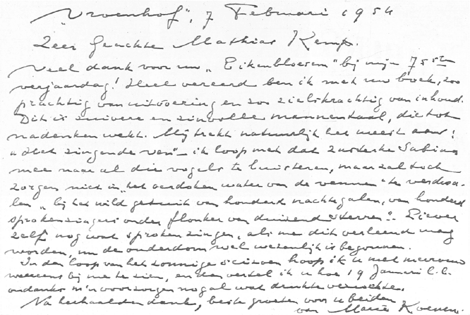 "Vrouenhof", 7 Februari 1954
Zeer Geachte Mathias Kemp.
Veel dank voor uw "Eikenbloesem" bij mijn 75ste
verjaardag! Heel vereerd ben ik met uw boek, zoo
prachtig van uitvoering en zoo zielskrachtig van inhoud.
Dit is zuivere en zinvolle mannentaal, die tot
nadenken wekt. Mij trekt natuurlijk het meest aan:
"Het zingende ven" – ik loop met dat zusterke Sabina
mee naar al die vogels te luisteren, maar zal toch
zorgen niet in "het verdoken water van de vennen" te verdwa-
len "bij het wild getruit van honderd nachtegalen, van honderd
sprokenzingers onder flonker van duizend sterren".
zelf nog wat sproken zingen, als me dit verleend mag
worden, nu de ouderdom wel wezenlijk is begonnen.
In de loop van het zonnige seizoen hoop ik u met mevrouw
weereens bij me te zien, en dan vertel ik u hoe 19 Januari l.l.
ondanks m'n voorzorgen nogal wat drukte
Na herhaalden dank, beste groeten voor u beiden
van Marie Koenen.